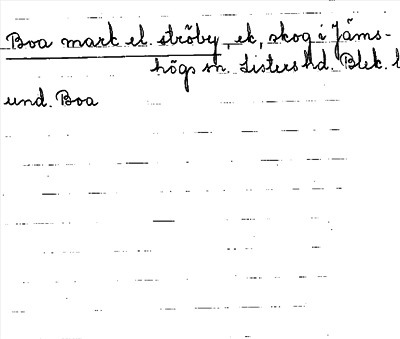 Boa mark el. ströby, ek, skog i Jäms-
högs sn. Listers hd. Blek. l
und. Boa